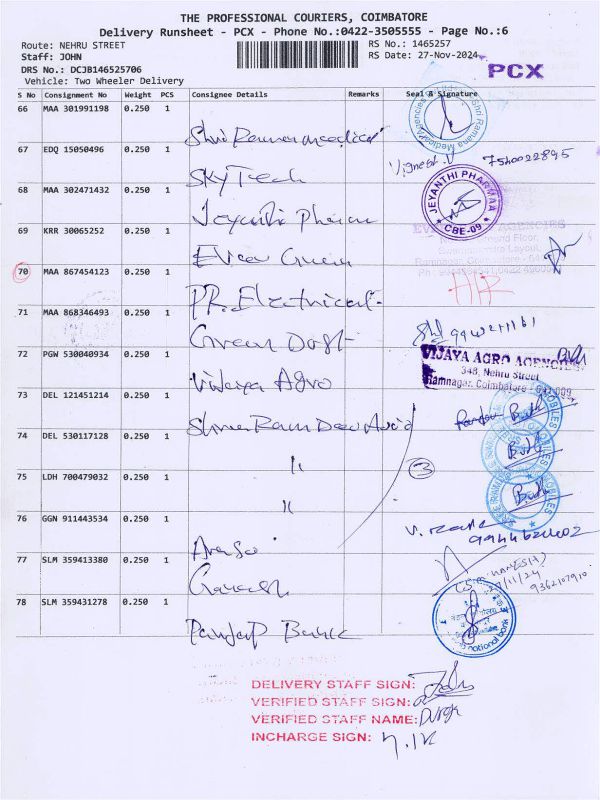 THE PROFESSIONAL COURIERS, COIMBATORE
Delivery Runsheet - PCX - Phone No.:0422-3505555 - Page No.:6
Route: NEHRU STREET RS No.: 1465257
Staff: JOHN RS Date: 27-Nov-2024
DRS No.: DCJB146525706
PCX
Vehicle: Two Wheeler Delivery
S No Consignment No Weight PCS Consignee Details Remarks Seal & Signature
66 MAA 301991198 0.250 1 Shri Ramana medical
Shri Ramana Medical Agencies
67 EDQ 15050496 0.250 1 Sky Tech
Vignesh.V 7540022895
68 MAA 302471432 0.250 1 Jeyanthi Pharma
JEYANTHI PHARMAA
CBE-09
69 KRR 30065252 0.250 1 Ever Green
AGENCIES
Ground Floor,
Layout,
Ramnagar, Coimbatore - 64
70 MAA 867454123 0.250 1 P.R. Electrical
71 MAA 868346493 0.250 1 Green Dost
72 PGW 530040934 0.250 1 Vijaya Agro
VIJAYA AGRO AGENCIES
348, Nehru Street
Ramnagar, Coimbatore - 641009
73 DEL 121451214 0.250 1 Shree Ram Dev Auto
74 DEL 530117128 0.250 1 "
3
75 LDH 700479032 0.250 1 "
76 GGN 911443534 0.250 1
77 SLM 359413380 0.250 1 Ganesh
(GANESH)
27/11/24
9362107910
78 SLM 359431278 0.250 1 Panjap Bank
national bank
DELIVERY STAFF SIGN:
VERIFIED STAFF SIGN:
VERIFIED STAFF NAME: Durga
INCHARGE SIGN: